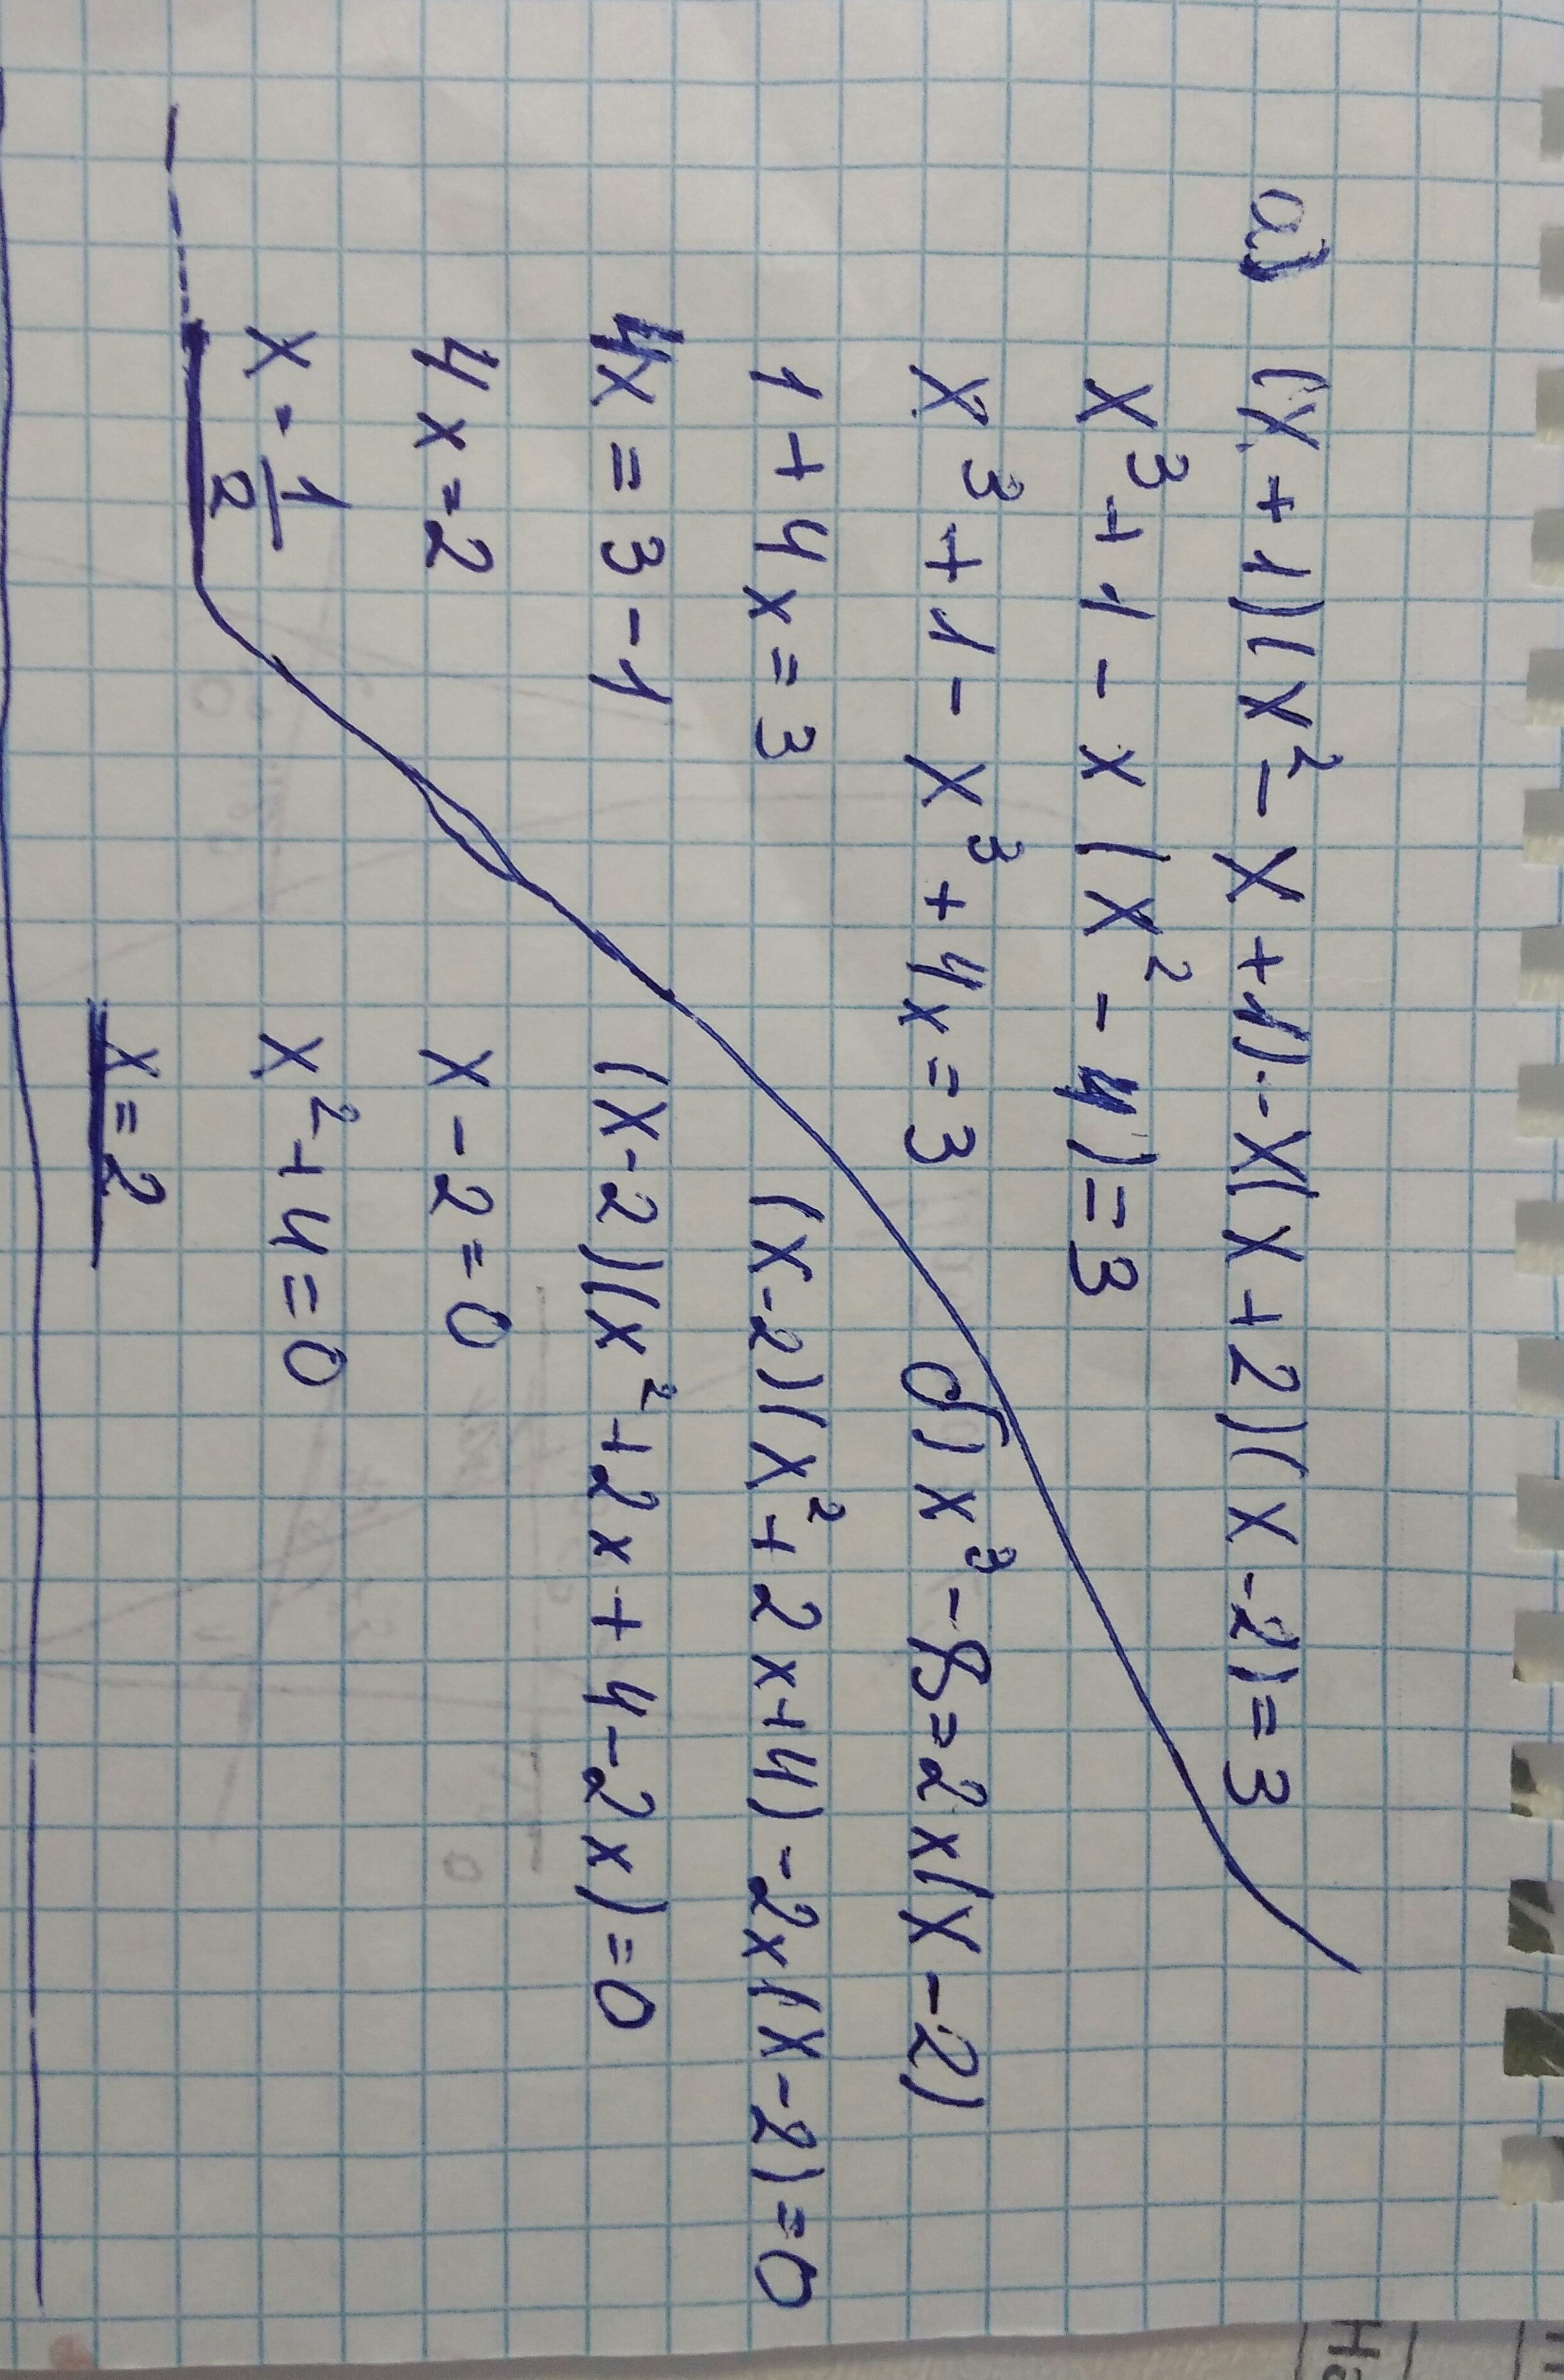 а) (x + 1)(x² - x + 1) - x(x + 2)(x - 2) = 3
x³ + 1 - x (x² - 4) = 3
x³ + 1 - x³ + 4x = 3
1 + 4x = 3
4x = 3 - 1
4x = 2
x = 1/2
б) x³ - 8 = 2x(x - 2)
(x - 2)(x² + 2x + 4) - 2x(x - 2) = 0
(x - 2)(x² + 2x + 4 - 2x) = 0
x - 2 = 0
x² + 4 = 0
x = 2